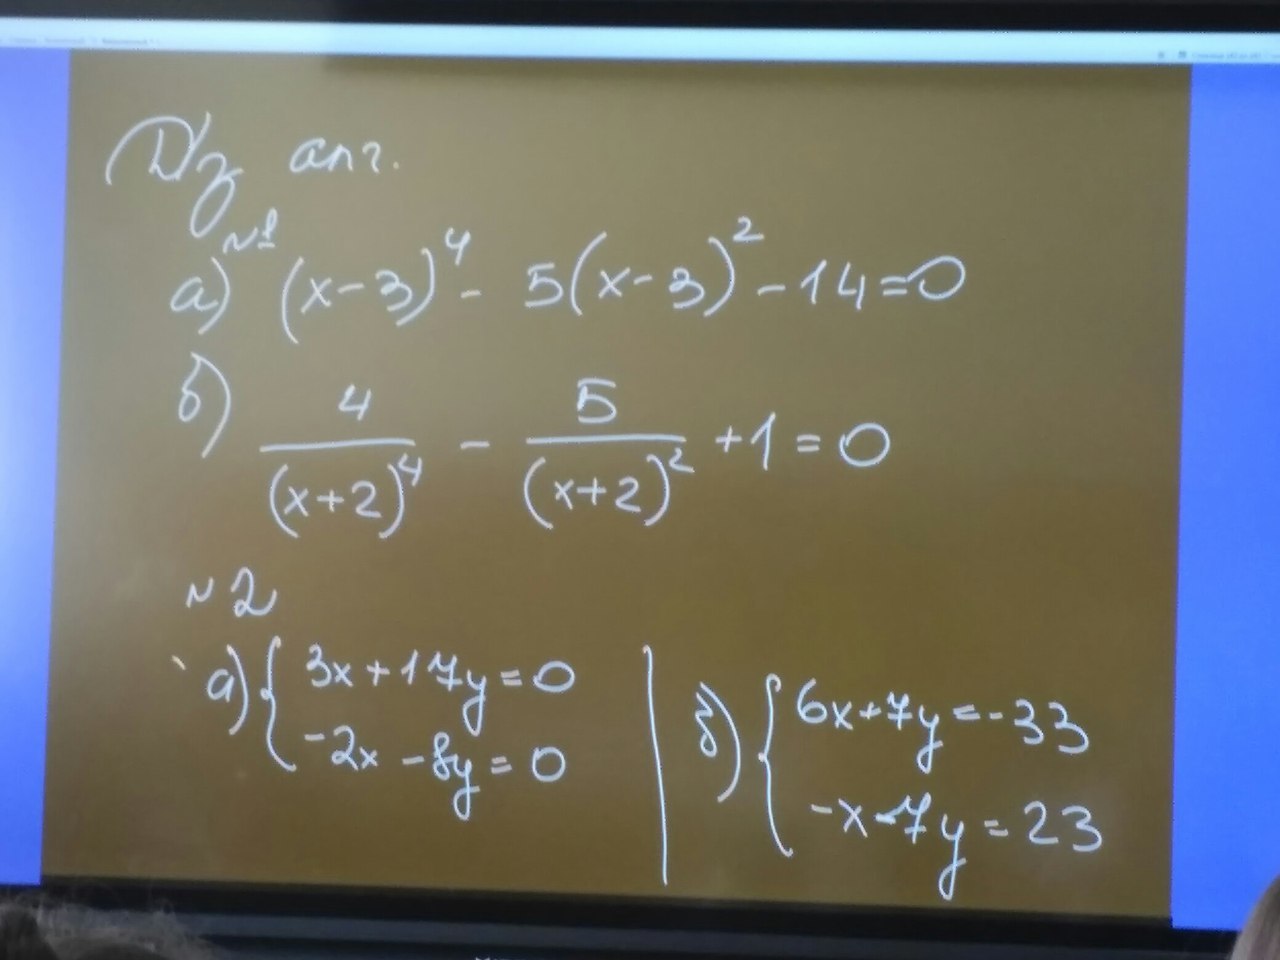 Д/з алг.
№1
а) (x-3)⁴ - 5(x-3)² - 14 = 0
б) 4/(x+2)⁴ - 5/(x+2)² + 1 = 0
№2
а) { 3x + 17y = 0
-2x - 8y = 0
б) { 6x + 7y = -33
-x - 7y = 23